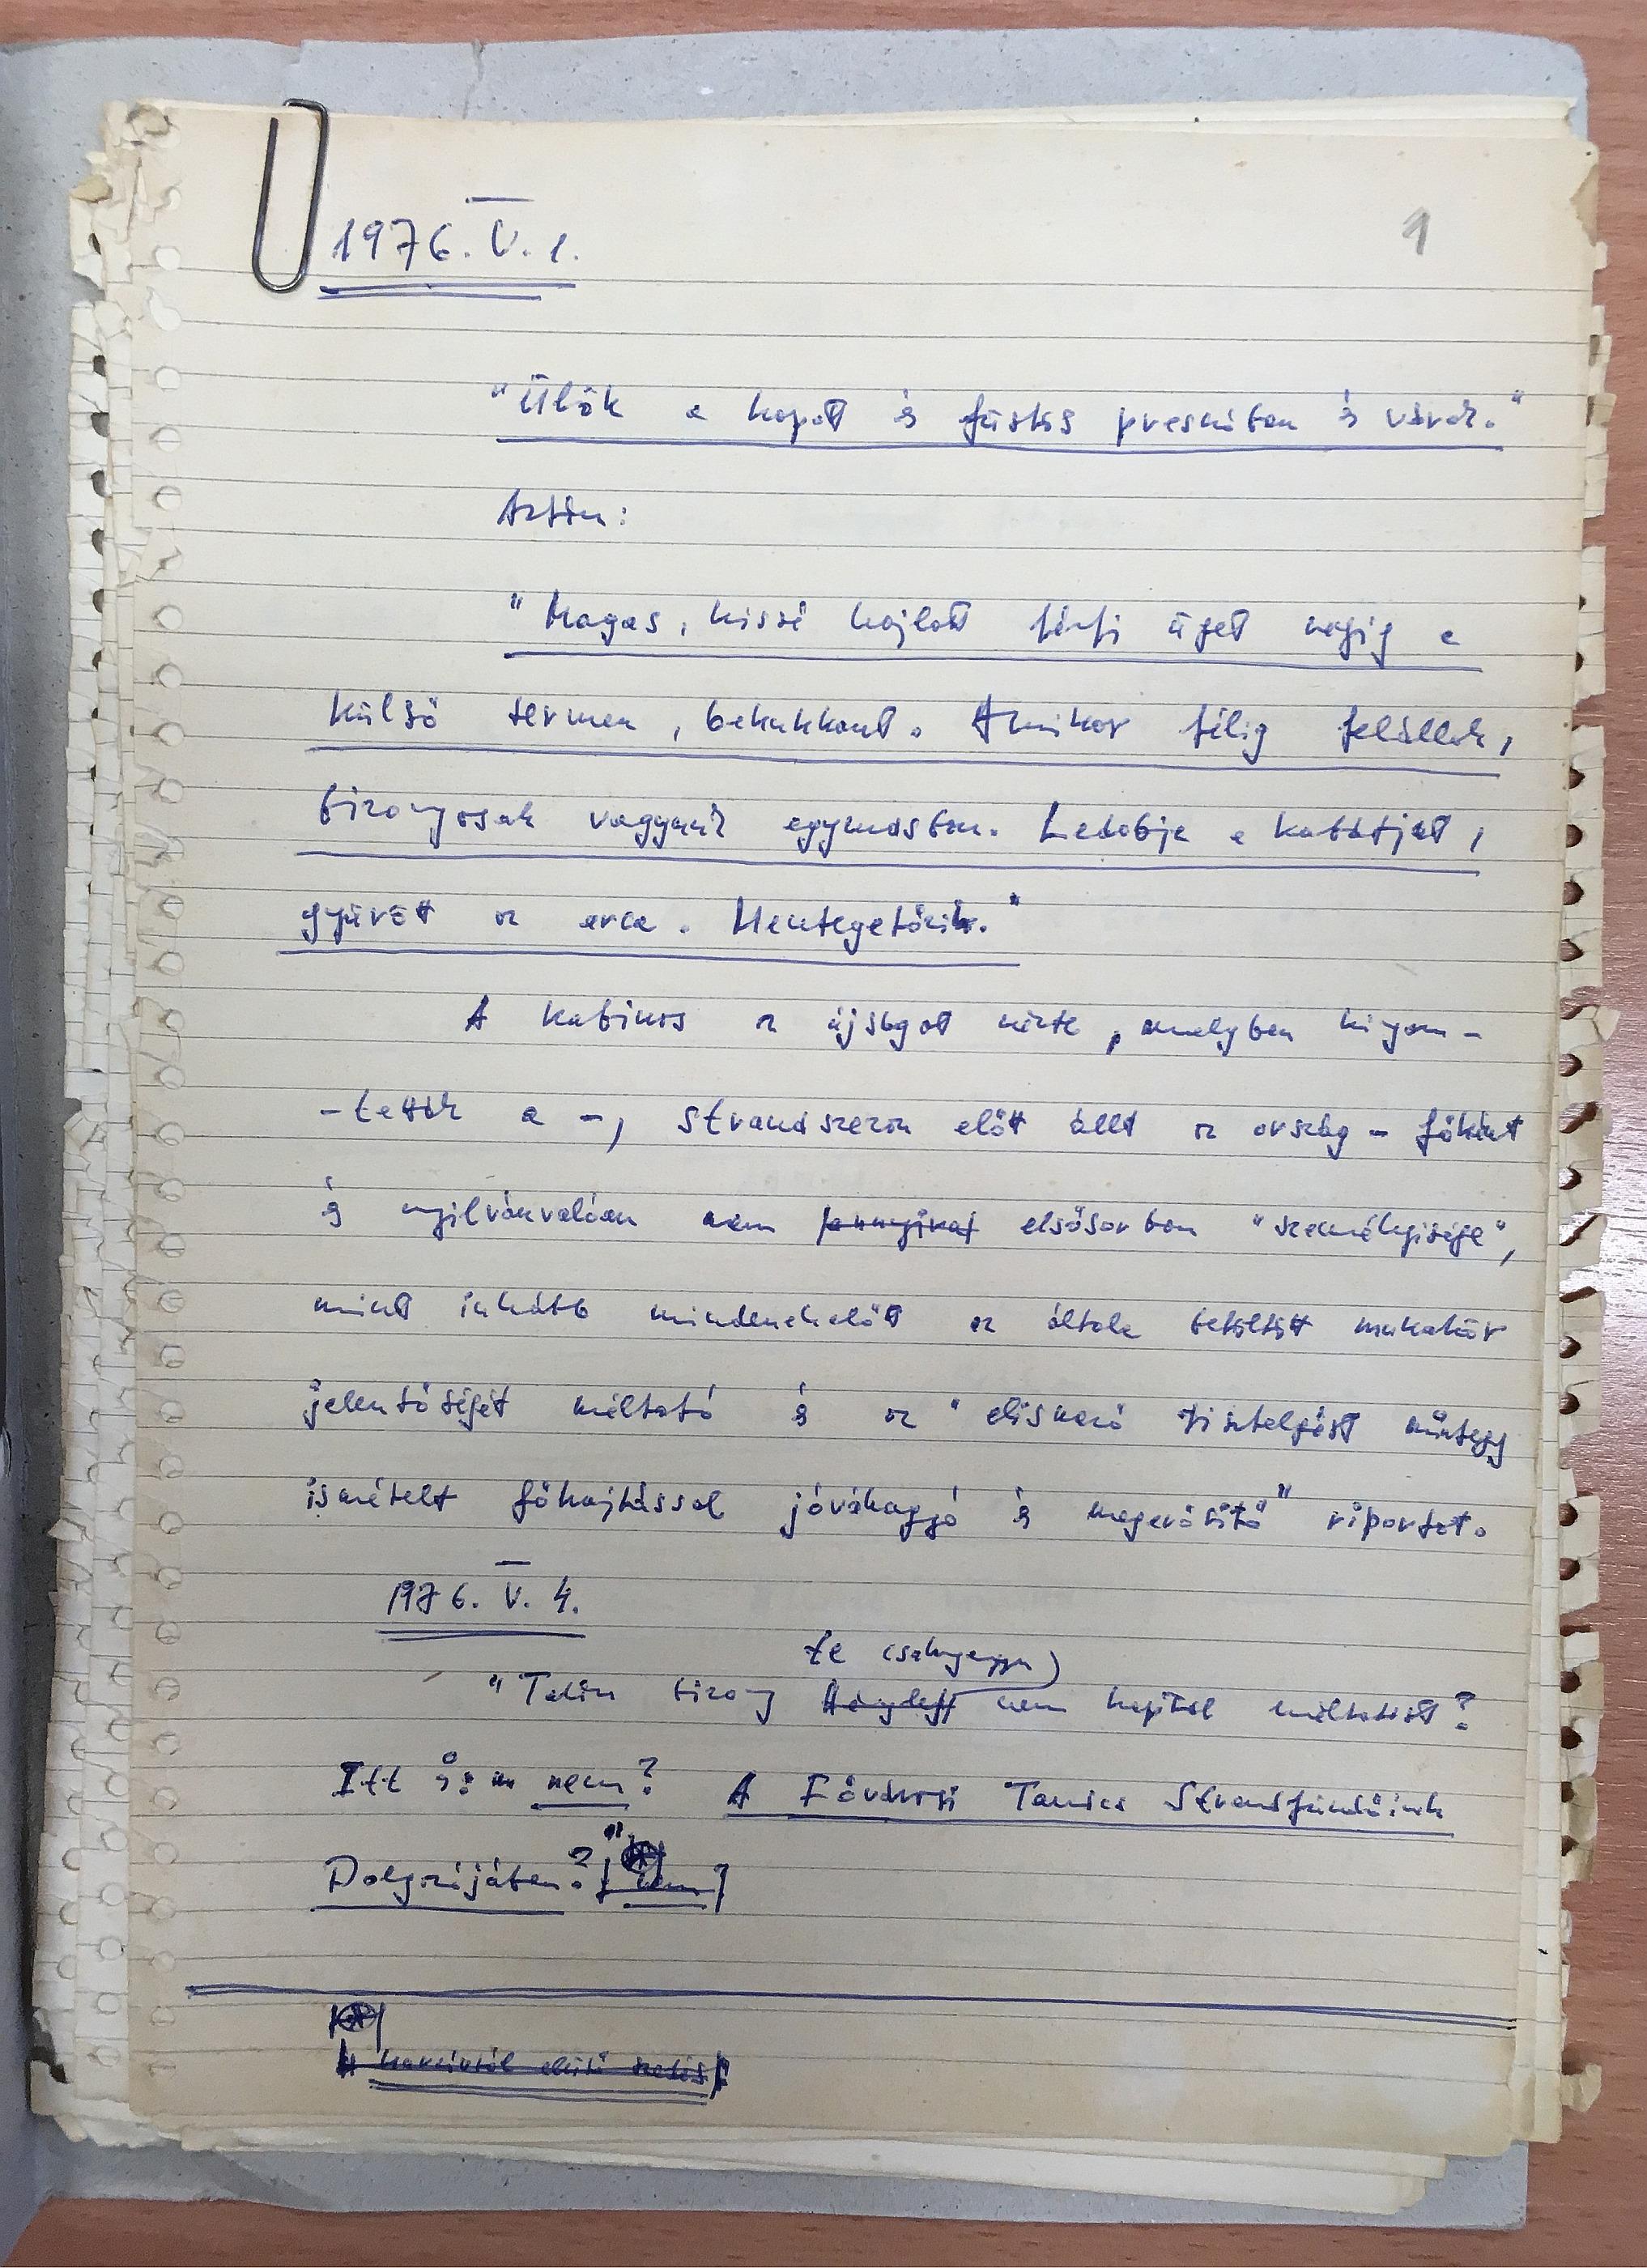 1976. V. 1.
1
"Ülök a kopott és füstös presszóban és várok."
Aztán:
"Magas, kissé hajlott férfi üget végig a
külső termen, bekukkant. Amikor félig felállok,
bizonyosak vagyunk egymásban. Ledobja a kabátját,
gyűrött az arca. Mentegetőzik."
A kabinos az újságot nézte, amelyben kinyom-
-tatták a -, strandszezon előtt állt az ország - főként
és nyilvánvalóan nem annyira elsősorban "személyisége",
mint inkább mindenekelőtt az általa betöltött munkakör
jelentőségét méltató és az "elismerő tisztelgést mintegy
ismételt főhajtással jóváhagyó és megerősítő" riportot.
1976. V. 4.
te csakugyan
"Talán bizony nem kaptál méltatást?
Itt és: nem? A Fővárosi Tanács Strandfürdőinek
Dolgozójában?"